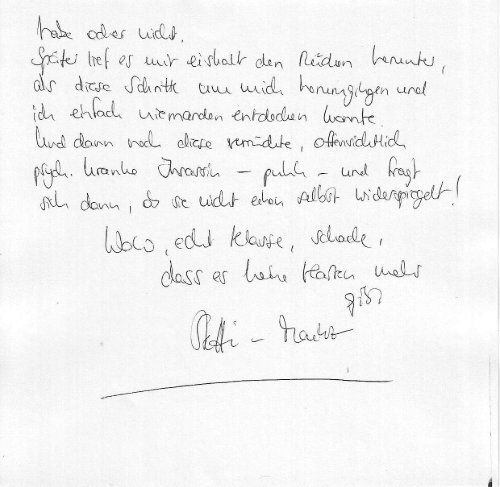 habe oder nicht.
Später lief es mir eiskalt den Rücken herunter,
als diese Schritte um mich herumgingen und
ich einfach niemanden entdecken konnte.
Und dann noch diese verrückte, offensichtlich
psych. kranke Insassin – puhh – und fragt
sich dann, ob sie nicht einen selbst widerspiegelt!
Wow, echt klasse, schade,
dass es keine Karten mehr
gibt
Steffi –